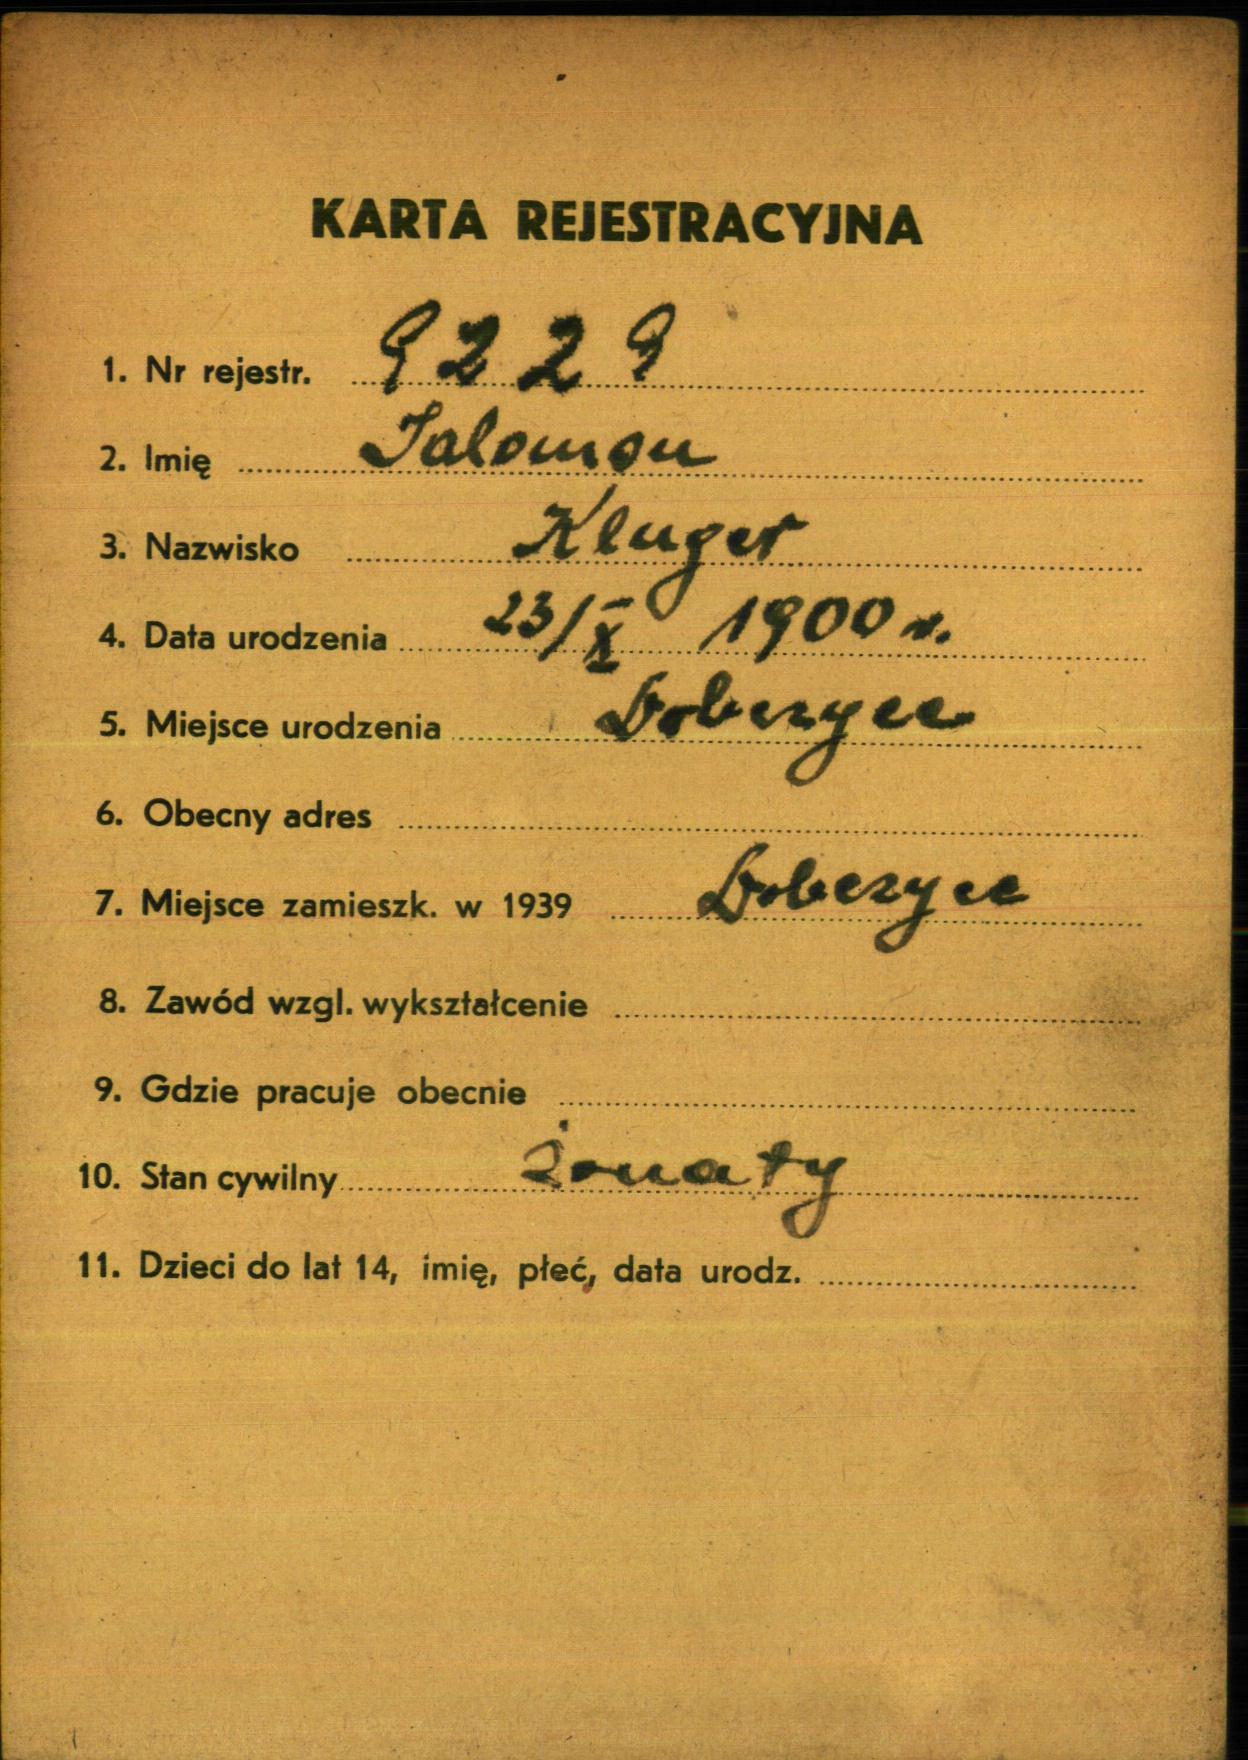 KARTA REJESTRACYJNA
1. Nr rejestr. 9229
2. Imię Salomon
3. Nazwisko Kluger
4. Data urodzenia 23/X 1900 r.
5. Miejsce urodzenia Dobczyce
6. Obecny adres
7. Miejsce zamieszk. w 1939 Dobczyce
8. Zawód wzgl. wykształcenie
9. Gdzie pracuje obecnie
10. Stan cywilny żonaty
11. Dzieci do lat 14, imię, płeć, data urodz.